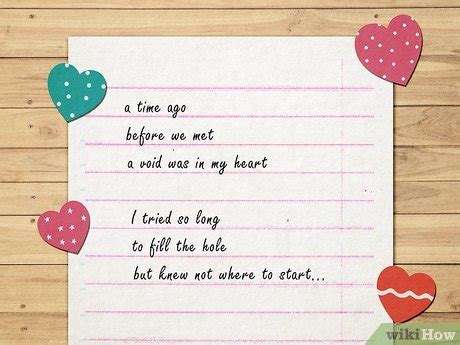 a time ago
before we met
a void was in my heart
I tried so long
to fill the hole
but knew not where to start...
wikiHow